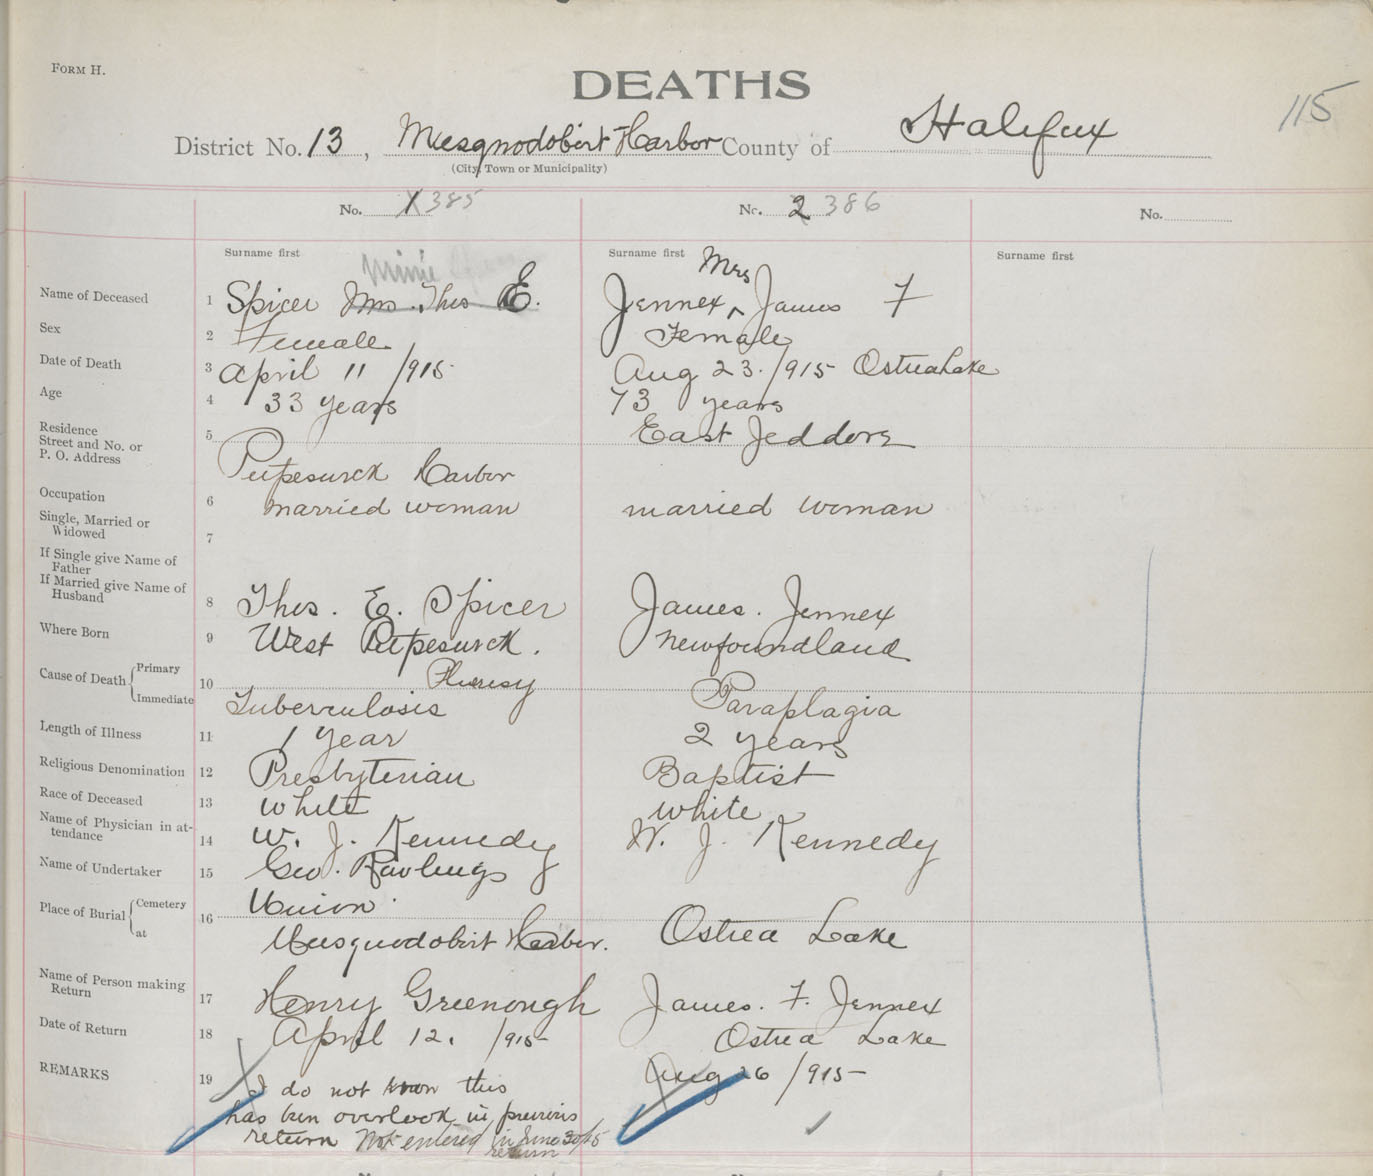 FORM H.
DEATHS
115
District No. 13, Musquodobirt Harbor County of Halifax
(City, Town or Municipality)
No. 1 385
No. 2 386
No.
Surname first
Surname first
Surname first
Name of Deceased
1
Minie
Spicer Mrs. Thos E.
Mrs
Jennex ^ James F
Sex
2
Female
Female
Date of Death
3
April 11 /915
Aug 23. /915 Ostrea Lake
Age
4
33 years
73 years
Residence
Street and No. or
P. O. Address
5
Petpeswick Harbor
East Jeddore
Occupation
6
married woman
married woman
Single, Married or
Widowed
7
If Single give Name of
Father
If Married give Name of
Husband
8
Thos. E. Spicer
James. Jennex
Where Born
9
West Petpeswick.
Newfoundland
Cause of Death { Primary
Immediate
10
Pleuresy
Tuberculosis
Paraplagia
Length of Illness
11
1 year
2 years
Religious Denomination
12
Presbyterian
Baptist
Race of Deceased
13
White
White
Name of Physician in at-
tendance
14
W. J. Kennedy
W. J. Kennedy
Name of Undertaker
15
Geo. Rawlings
Place of Burial { Cemetery
at
16
Union
Musquodobirt Harbor.
Ostrea Lake
Name of Person making
Return
17
Henry Greenough
James. F. Jennex
Date of Return
18
April 12. /915
Ostrea Lake
REMARKS
19
Aug 26 /915
I do not know this
has ben overlook in previous
return Not entered in June 30/15
return